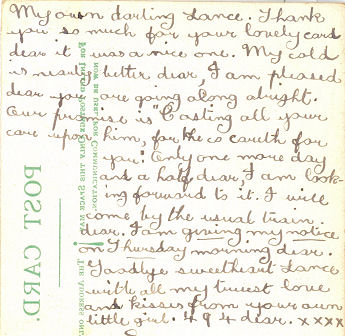 My own darling Lance. Thank
you so much for your lovely card
dear it was a nice one. My cold
is nearly better dear, I am pleased
dear you are going along alright.
Our promise is "Casting all your
care upon him, for he careth for
you." Only one more day
and a half dear, I am look-
ing forward to it. I will
come by the usual train
dear. I am giving my notice
on Thursday morning dear.
Goodbye sweetheart Lance
with all my truest love
and kisses from your own
little girl. 4 9 4 dear. x x x x
POST CARD.